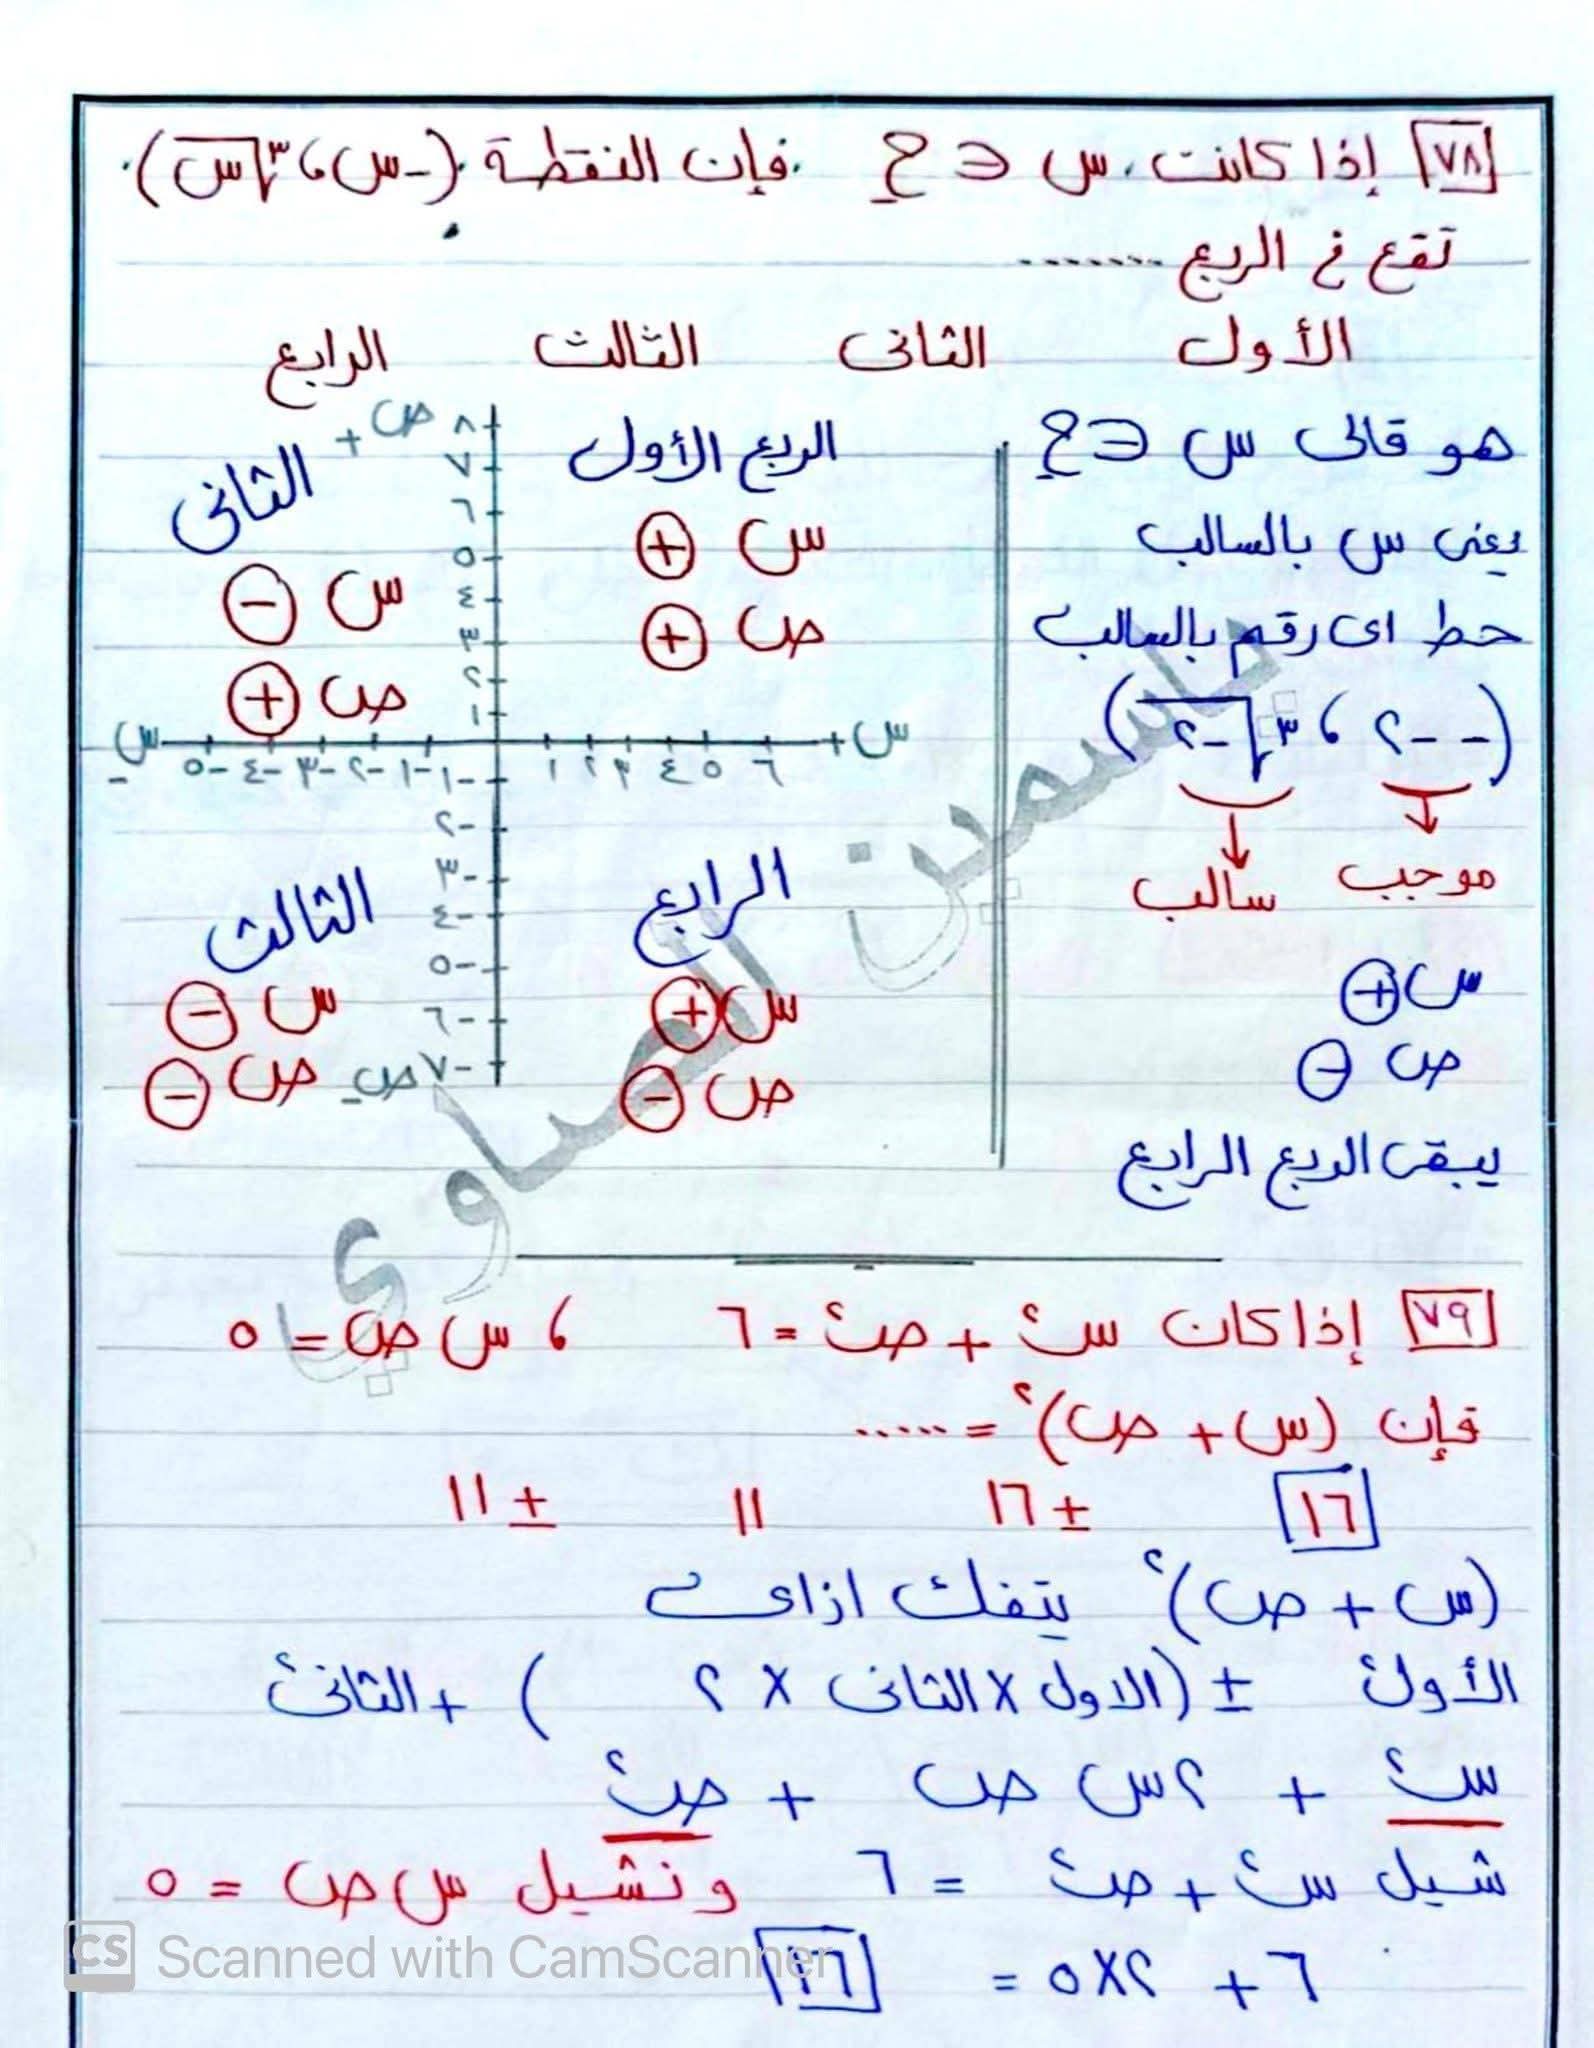 ٧٨ إذا كانت س ∈ ح₋ فإن النقطة (-س ، ³√س)
تقع في الربع .......
الأول الثاني الثالث الرابع
هو قالى س ∈ ح₋
يعنى س بالسالب
حط اى رقم بالسالب
(- -٢ ، ³√-٢)
موجب سالب
س +
ص -
يبقى الربع الرابع
ص +
٨
٧
٦
٥
٤
٣
٢
١
الربع الأول
س +
ص +
الثانى
س -
ص +
س- -٥ -٤ -٣ -٢ -١ ١ ٢ ٣ ٤ ٥ ٦ +س
-١
-٢
-٣
-٤
-٥
-٦
-٧
ص-
الرابع
س +
ص -
الثالث
س -
ص -
ياسمين الصاوي
٧٩ إذا كان س² + ص² = ٦ ، س ص = ٥
فإن (س + ص)² = .....
١٦ ± ١٦ ١١ ± ١١
(س + ص)² يتفك ازاى
الأول² ± (الاول × الثانى × ٢) + الثانى²
س² + ٢س ص + ص²
شيل س² + ص² = ٦ ونشيل س ص = ٥
٦ + ٢×٥ = ١٦
CS Scanned with CamScanner